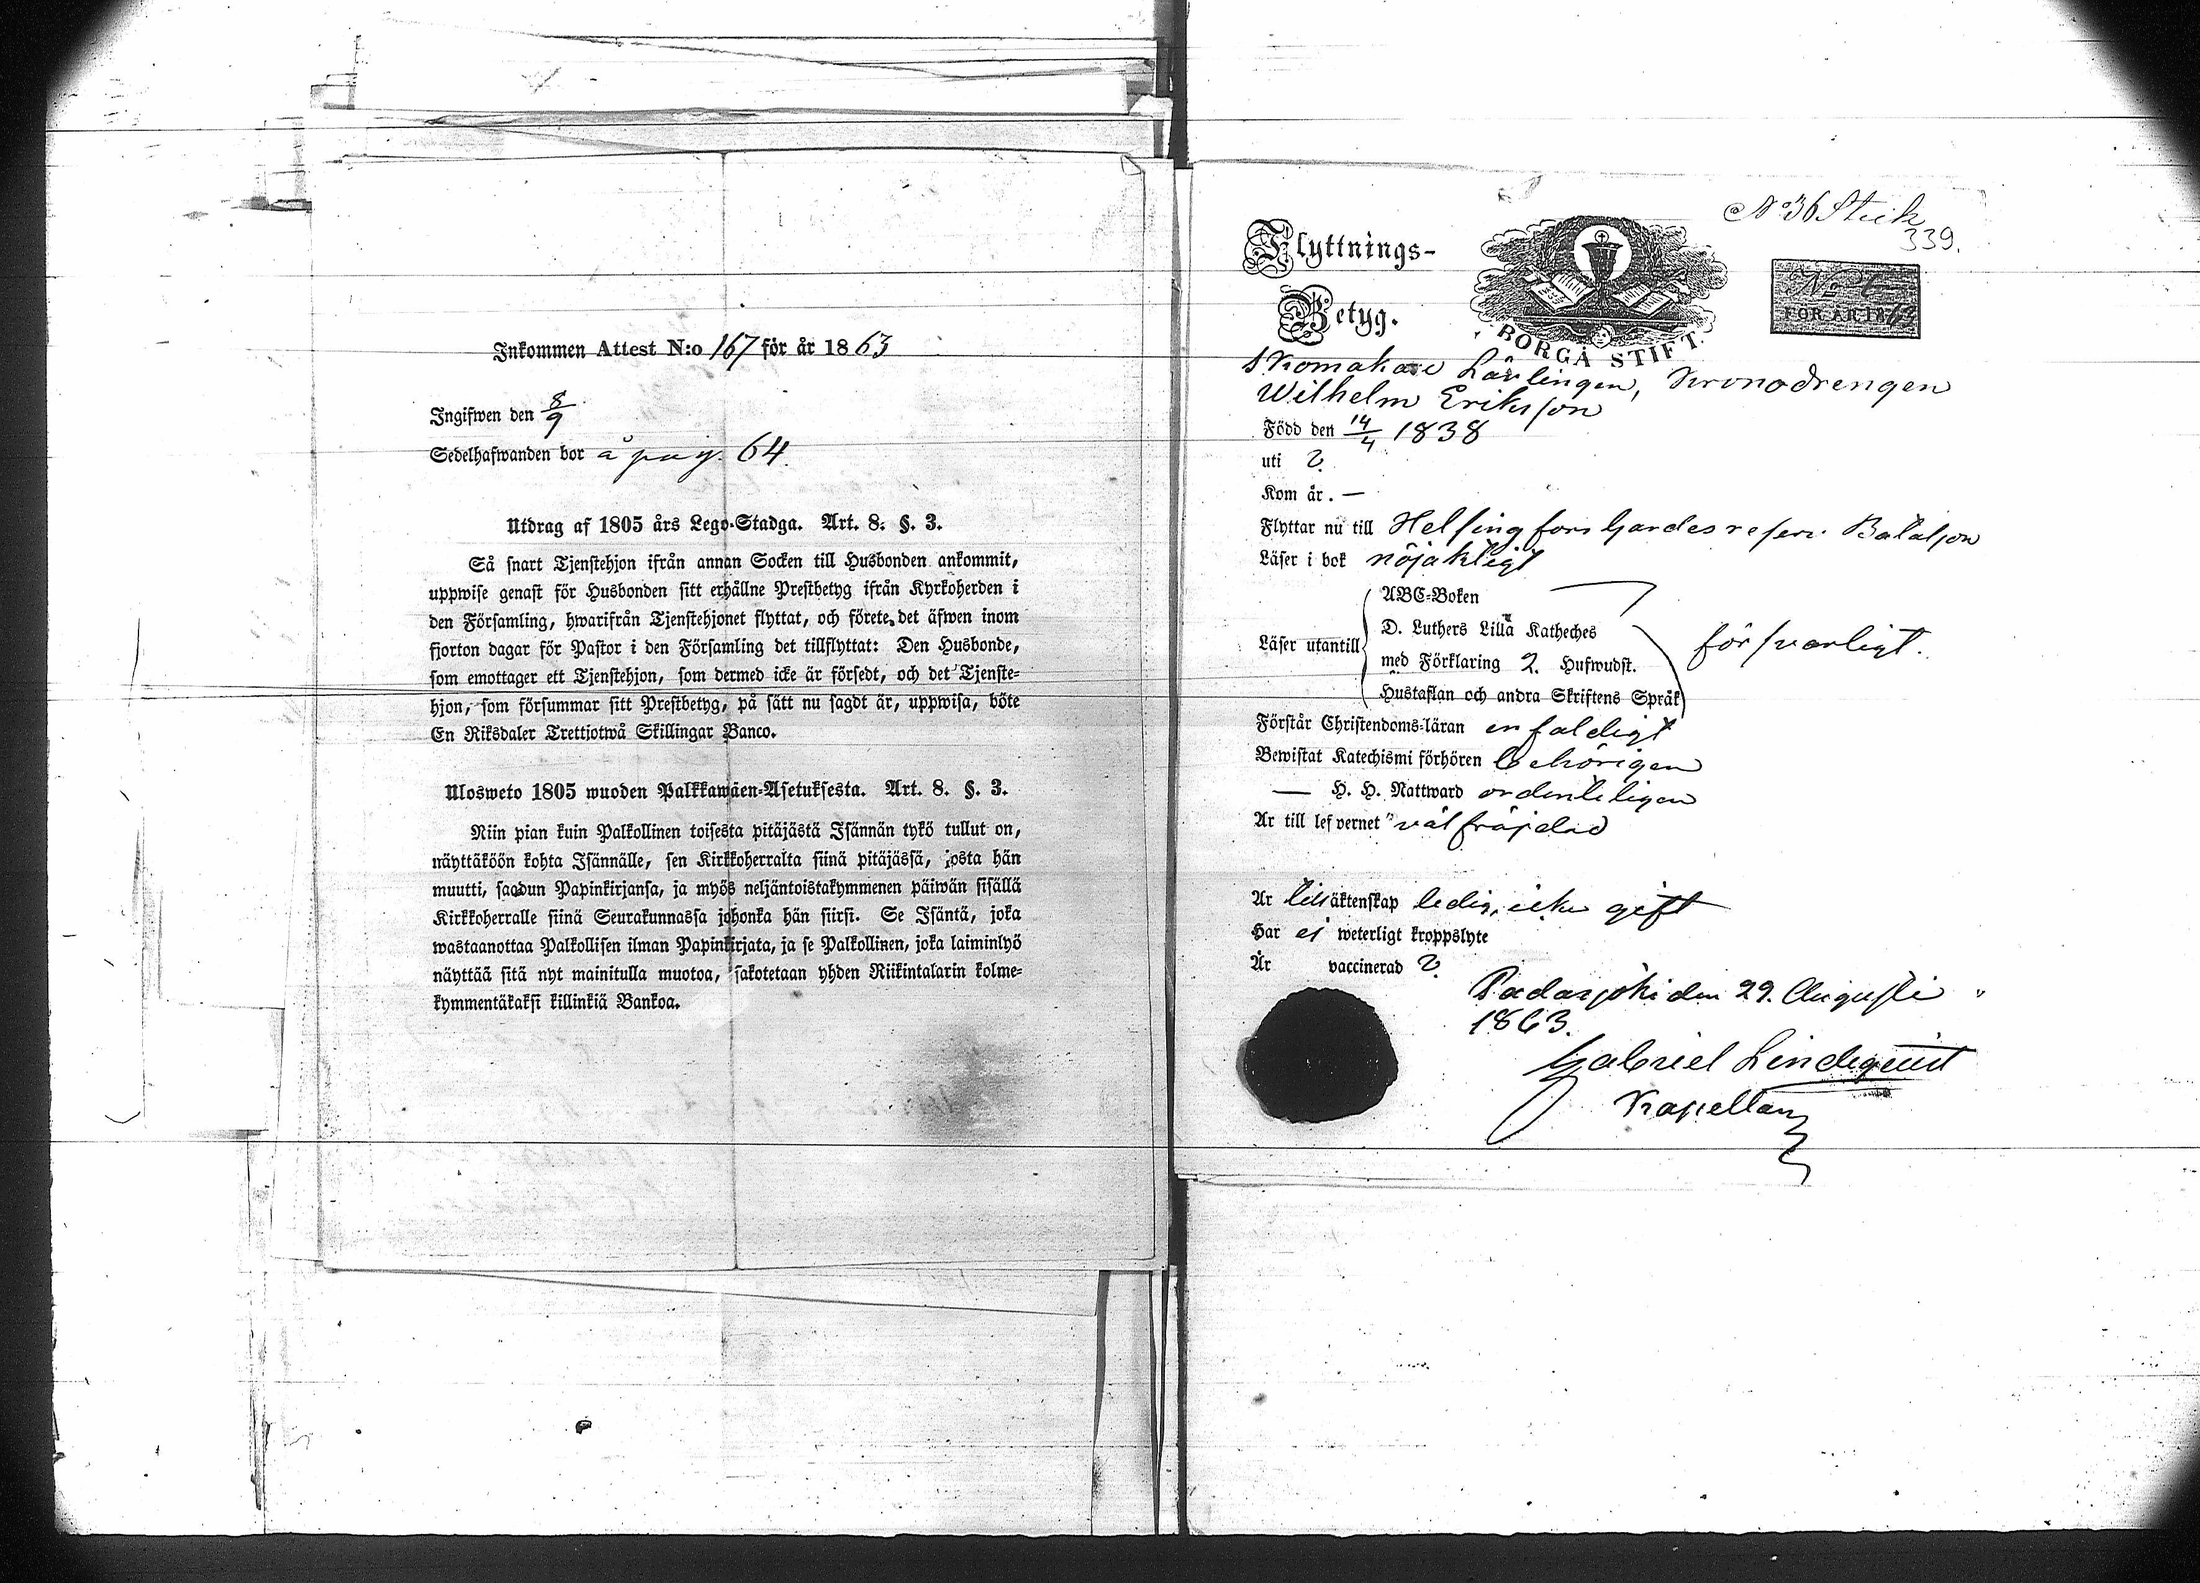 Inkommen Attest N:o 167 för år 1863
Ingifwen den 8/9
Sedelhafwanden bor å pag. 64.
Utdrag af 1805 års Lego-Stadga. Art. 8. §. 3.
Så snart Tjenstehjon ifrån annan Socken till Husbonden ankommit,
uppwise genast för Husbonden sitt erhållne Prestbetyg ifrån Kyrkoherden i
den Församling, hwarifrån Tjenstehjonet flyttat, och förete det äfwen inom
fjorton dagar för Pastor i den Församling det tillflyttat: Den Husbonde,
som emottager ett Tjenstehjon, som dermed icke är försedt, och det Tjenste-
hjon, som försummar sitt Prestbetyg, på sätt nu sagdt är, uppwisa, böte
En Riksdaler Trettjotwå Skillingar Banco.
Ulosweto 1805 wuoden Palkkawäen-Asetuksesta. Art. 8. §. 3.
Niin pian kuin Palkollinen toisesta pitäjästä Isännän tykö tullut on,
näyttäköön kohta Isännälle, sen Kirkkoherralta siinä pitäjässä, josta hän
muutti, saadun Papinkirjansa, ja myös neljäntoistakymmenen päiwän sisällä
Kirkkoherralle siinä Seurakunnassa johonka hän siirsi. Se Isäntä, joka
wastaanottaa Palkollisen ilman Papinkirjata, ja se Palkollinen, joka laiminlyö
näyttää sitä nyt mainitulla muotoa, sakotetaan yhden Riikintalarin kolme-
kymmentäkaksi killinkiä Bankoa.
No 36
339.
Flyttnings-
Betyg.
BORGÅ STIFT.
No
FÖR ÅR 1863
Skomakare Lärlingen, Kronodrengen
Wilhelm Eriksson
Född den 14/4 1838
uti ?
Kom år. —
Flyttar nu till Helsingfors Gardes reserv. Bataljon
Läser i bok nöjaktigt
ABC-Boken
D. Luthers Lilla Katheches
Läser utantill
försvarligt.
med Förklaring 2 Hufwudst.
Hustaflan och andra Skriftens Språk
Förstår Christendoms-läran enfaldigt
Bewistat Katechismi förhören behörigen
— H. H. Nattward ordenteligen
Är till lefvernet väl fräjdad
Är till äktenskap ledig, icke gift
Har ej weterligt kroppslyte
Är vaccinerad ?
Padasjoki den 29. Augusti
1863.
Gabriel Lindeqvist
Kapellan